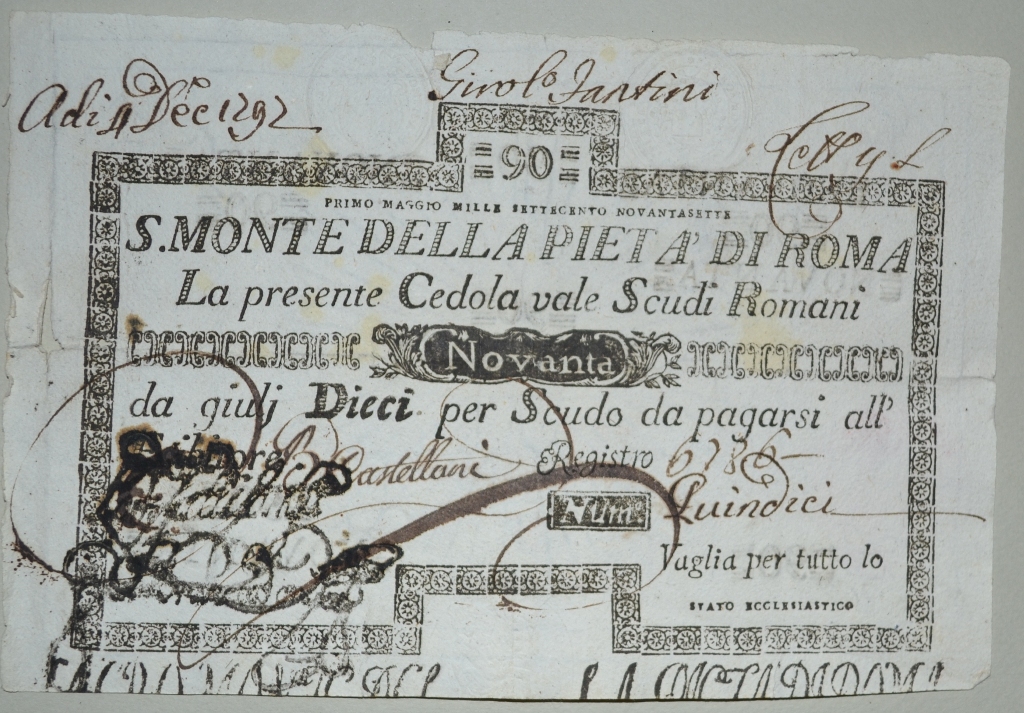 Adi 4 Dec 1797
Girol° Fantini
= 90 =
PRIMO MAGGIO MILLE SETTECENTO NOVANTASETTE
S. MONTE DELLA PIETA' DI ROMA
La presente Cedola vale Scudi Romani
Novanta
da giulj Dieci per Scudo da pagarsi all'
Esibitore B Castellani Registro 6786
Num. Quindici
Vaglia per tutto lo
STATO ECCLESIASTICO